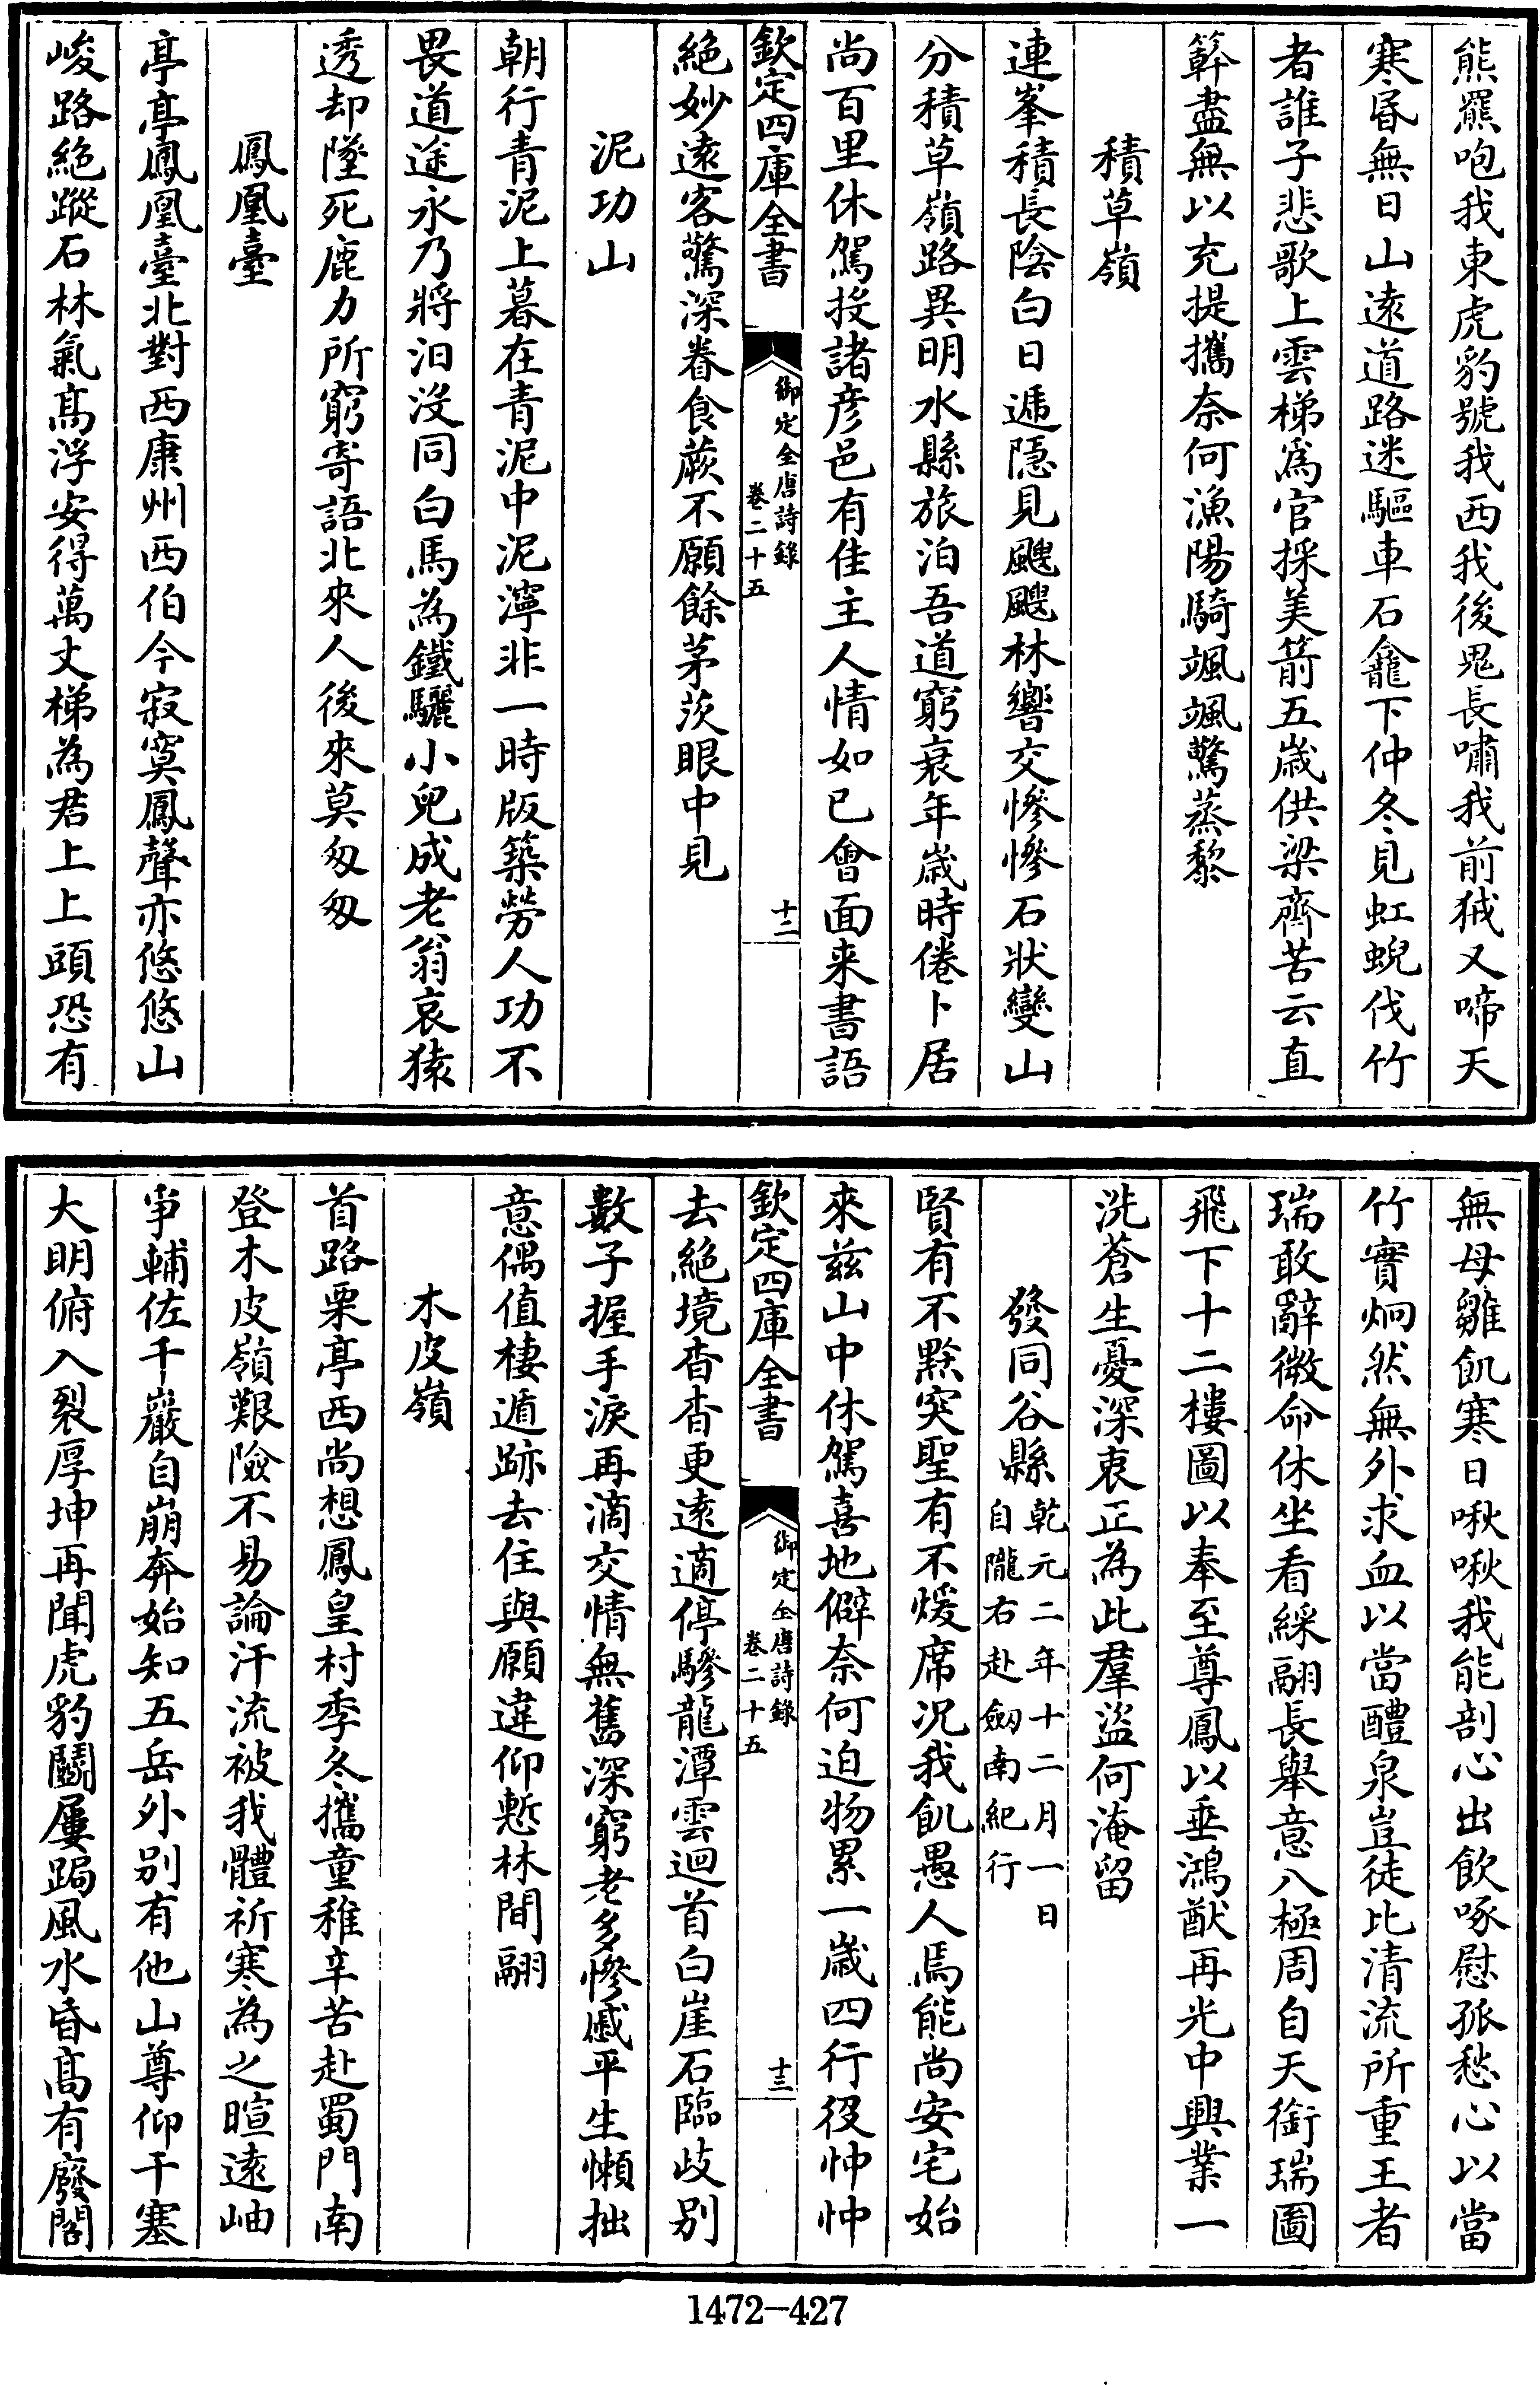 熊羆咆我東虎豹號我西我後鬼長嘯我前狨又啼天
寒昏無日山遠道路迷驅車石龕下仲冬見虹蜺伐竹
者誰子悲歌上雲梯爲官採美箭五歲供梁齊苦云直
簳盡無以充提攜奈何漁陽騎颯颯驚蒸黎
積草嶺
連峯積長陰白日遞隱見颼颼林響交慘慘石狀變山
分積草嶺路異明水縣旅泊吾道窮衰年歲時倦卜居
尚百里休駕投諸彦邑有佳主人情如已會面来書語
欽定四庫全書
御定全唐詩錄
卷二十五
十二
絕妙遠客驚深眷食蕨不願餘茅茨眼中見
泥功山
朝行青泥上暮在青泥中泥濘非一時版築勞人功不
畏道途永乃將汩沒同白馬為鐵驪小兒成老翁哀猿
透却墜死鹿力所窮寄語北來人後來莫匆匆
鳳凰臺
亭亭鳳凰臺北對西康州西伯今寂寞鳳聲亦悠悠山
峻路絶蹤石林氣髙浮安得萬丈梯為君上上頭恐有
無母雛飢寒日啾啾我能剖心出飲啄慰孤愁心以當
竹實炯然無外求血以當醴泉豈徒比清流所重王者
瑞敢辭微命休坐看綵翮長舉意八極周自天銜瑞圖
飛下十二樓圖以奉至尊鳳以垂鴻猷再光中興業一
洗蒼生憂深衷正為此羣盜何淹留
發同谷縣
乾元二年十二月一日
自隴右赴劒南紀行
賢有不黔突聖有不煖席况我飢愚人焉能尚安宅始
來兹山中休駕喜地僻奈何迫物累一歲四行役忡忡
欽定四庫全書
御定全唐詩錄
卷二十五
十三
去絶境杳杳更遠適停驂龍潭雲迴首白崖石臨歧別
數子握手淚再滴交情無舊深窮老多慘慼平生懶拙
意偶值棲遁跡去住與願違仰慙林間翮
木皮嶺
首路栗亭西尚想鳳皇村季冬攜童稚辛苦赴蜀門南
登木皮嶺艱險不易論汗流被我體祈寒為之暄遠岫
爭輔佐千巖自崩奔始知五岳外別有他山尊仰干塞
大明俯入裂厚坤再聞虎豹鬭屢跼風水昏髙有廢閣
1472-427